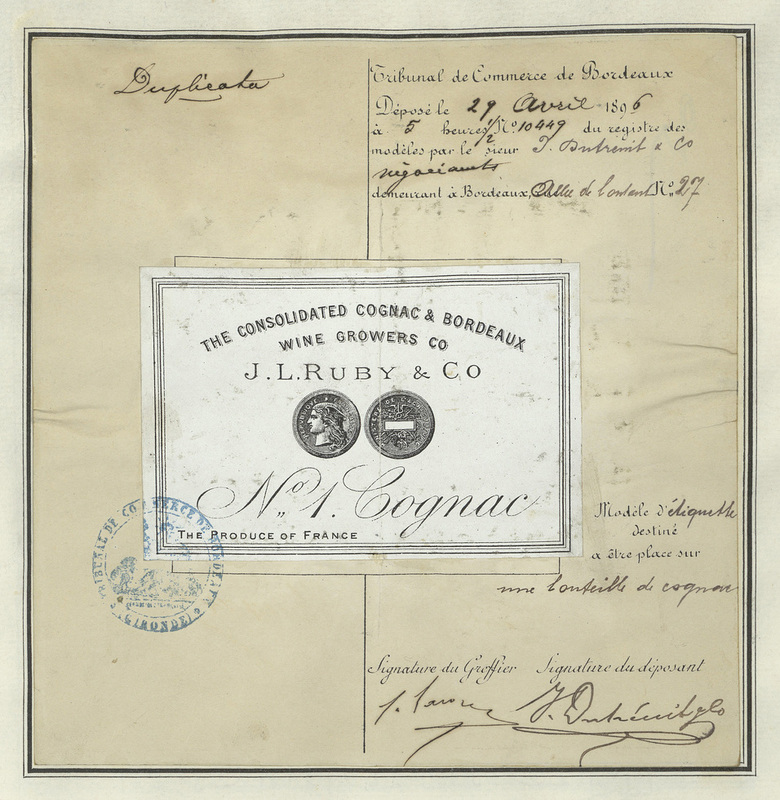 Duplicata
Tribunal de Commerce de Bordeaux
Déposé le 29 Avril 1896
à 5 heures 1/2 N° 10449 du registre des
modèles par le sieur J. Dutrénit & Co
négociants
demeurant à Bordeaux, Allée de N° 27
THE CONSOLIDATED COGNAC & BORDEAUX
WINE GROWERS CO
J.L. RUBY & CO
No 1. Cognac
THE PRODUCE OF FRANCE
TRIBUNAL DE COMMERCE DE BORDEAUX
(GIRONDE)
Modèle d'étiquette
destiné
a être place sur
une bouteille de cognac
Signature du Greffier Signature du déposant
J. Dutrénit & Co